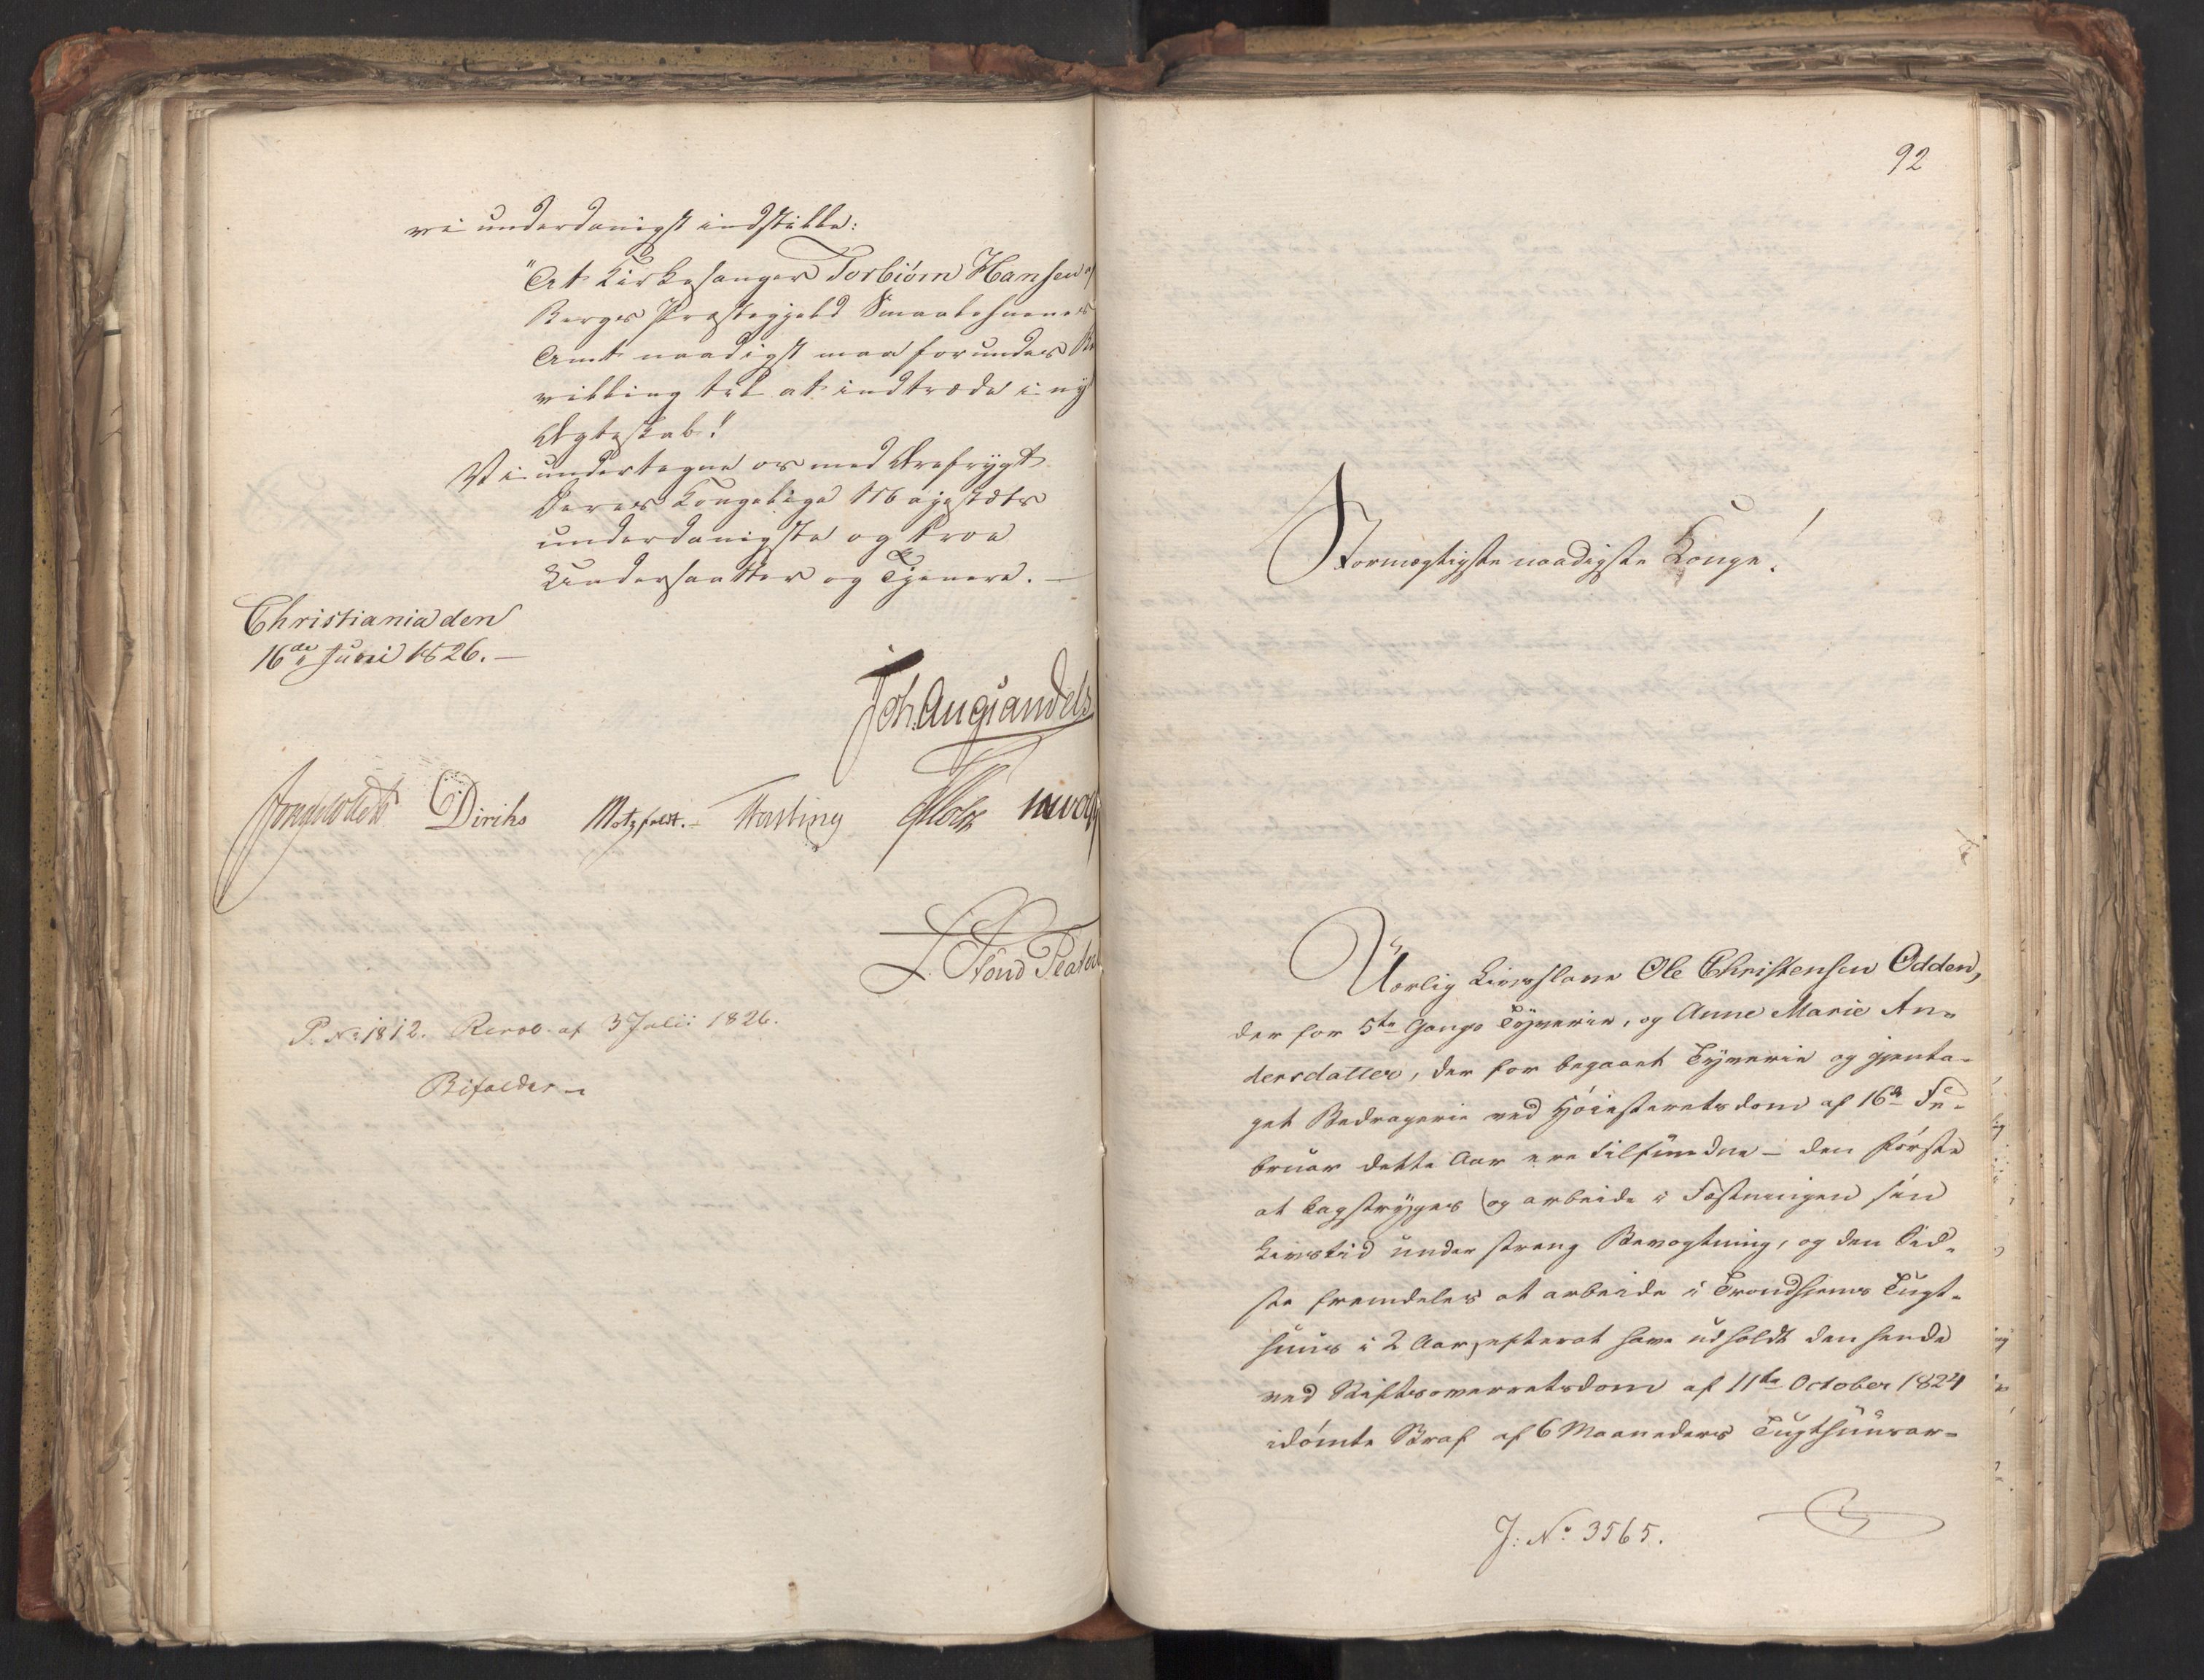 vi underdanigst indstille:
"At Kirkesanger Torbiörn Hansen af
Berges Præstegjeld Smaalehnenes
Amt naadigst maa forundes Be
villing til at indtræde i nyt
Ægteskab."
Vi undertegne os med Ærefrygt
Deres Kongelige Majestæts
underdanigste og troe
Undersaatter og Tjenere.
Christiania den
16de Juni 1826.
Joh. Aug. Sandels
Diriks Motzfeldt.
L. Stoud Platou
P. No 1812. Resol. af 3 Julii 1826.
Bifaldes
92
Stormægtigste naadigste Konge!
Uærlig Livsslave Ole Christensen Odden,
der for 5te Gangs Tyverie, og Anne Marie An-
dersdatter, der for begaaet Tyverie og gjenta-
get Bedragerie ved Höiesteretsdom af 16de Fe-
bruar dette Aar ere tilfundne – den förste
at kagstryges og arbeide i Fæstningen sin
Livstid under streng Bevogtning, og den Sid-
ste fremdeles at arbeide i Trondhiems Tugt-
huus i 2 Aar, efterat have udholdt den hende
ved Stiftsoverretsdom af 11te October 1824
idömte Straf af 6 Maaneders Tugthuusar-
J: No 3565.